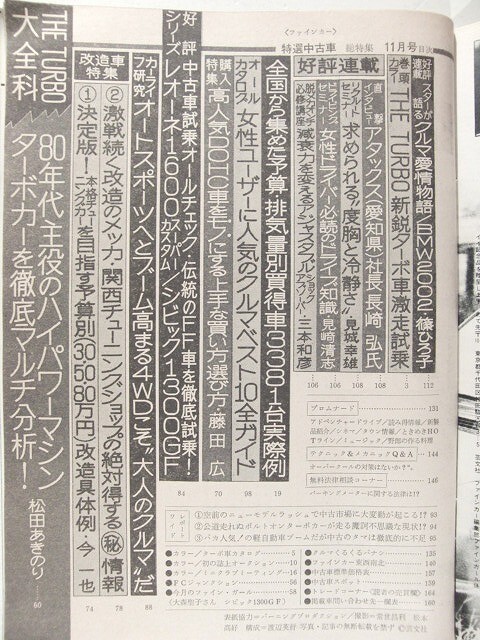 〈ファインカー〉
特選中古車 総特集 11月号 目次
好評連載 スターが語る クルマ愛情物語/BMW2002・篠ひろ子 112
巻頭カラー THE TURBO 新鋭ターボ車激走試乗 3
好評連載
直撃インタビュー アタックス(愛知県)社長 長崎 弘氏 108
リクルートセミナー 求められる"度胸と冷静さ"・見城幸雄 108
女性ドライバー必読のドライブ知識・見崎清志 106
減衰力を変えるアジャスタブルショックアブソーバー・三本和彦 106
全国から集めた予算・排気量別買得車3381台実際例 19
オールカタログ 女性ユーザーに人気のクルマベスト10全ガイド 98
購入特集 高人気DOHC車をモノにする上手な買い方選び方・藤田 広 70
好評シリーズ 中古車試乗オールチェック・伝統のFF車を徹底試乗!
レオーネ1600スーパーカスタム/シビック1300GF 84
カーライフ研究 オートスポーツへとブーム高まる4WDこそ"大人のクルマ"だ 88
改造車特集
②激戦続く改造のメッカ・関西チューニングショップの絶対得する㊙情報 78
①決定版!本格チューニングカーを目指す予算別(30・50・80万円)改造具体例・今 一也 74
THE TURBO 大全科
80年代主役のハイパワーマシン
ターボカーを徹底マルチ分析!
松田あきのり 60
プロムナード 131
アドベンチャードライブ/読み得情報/新製品紹介/シネマ/タウン情報/ときめきHOTライン/ミュージック/野郎の作る料理
テクニックメカニックQ&A 144
オーバークールの対策はないか?
無料法律相談コーナー 146
パーキングメーターに関する法律は!?
ワイドレポート
①空前のニューモデルラッシュで中古市場に大変動が起こる!? 93
②公道走れぬボルトオンターボカーが走る魔訶不思議な現状!? 94
③バカ人気!の軽自動車ブームだが中古のタマは徹底的に不足!? 95
●カラー/ターボ車カタログ 5
●カラー/初の誌上オークション 10
●カラー/トミークラブミーティング 16
●FCジャンクション 56
●今月のファイン・ガール 58
(大森聖子さん シビック1300GF)
●クルマくるくるパテン 135
●ファインカー東西南北 140
●中古車標準価格表 157
●中古車スポット 159
●トレードコーナー(読者の売買欄) 164
●掲載車問い合わせ先一覧表 160